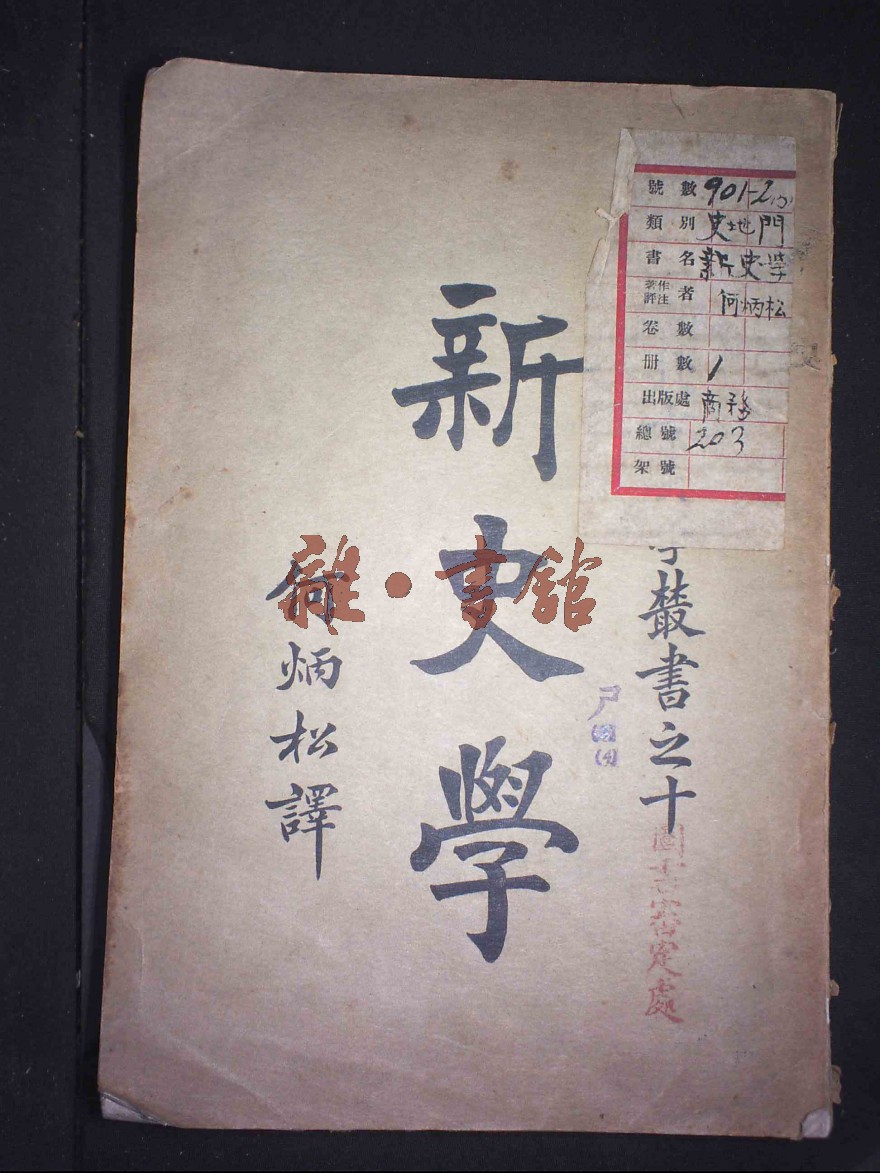 號數 901-2
類別 史地門
書名 新史學
著作者 譯注 何炳松
卷數
冊數 1
出版處 商務
總號 203
架號
學叢書之十
圖書審定處
新史學
何炳松譯
雜·書館